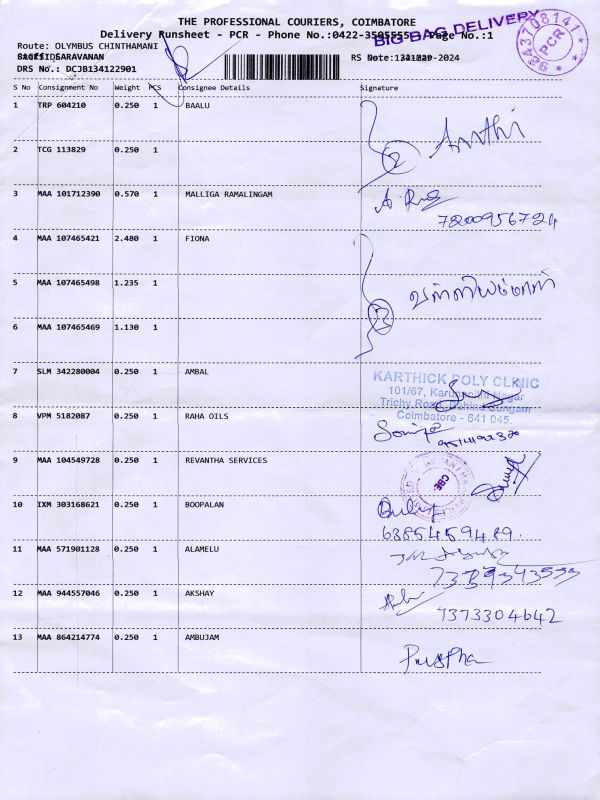 THE PROFESSIONAL COURIERS, COIMBATORE
Delivery Runsheet - PCR - Phone No.:0422- Page No.:1
BIG BAG DELIVERY
Route: OLYMBUS CHINTHAMANI
SARAVANAN
DRS No.: DCJB134122901
PCR
S No Consignment No Weight PCS Consignee Details Signature
1 TRP 604210 0.250 1 BAALU
2 TCG 113829 0.250 1
3 MAA 101712390 0.570 1 MALLIGA RAMALINGAM
7200956724
4 MAA 107465421 2.480 1 FIONA
5 MAA 107465498 1.235 1
6 MAA 107465469 1.130 1
7 SLM 342280004 0.250 1 AMBAL
KARTHICK POLY CLINIC
101/67, Karunanithi Nagar
Trichy Road, Sungam
Coimbatore - 641 045.
8 VPM 5182087 0.250 1 RAHA OILS
9 MAA 104549728 0.250 1 REVANTHA SERVICES
CBE
10 IXM 303168621 0.250 1 BOOPALAN
6385459489
11 MAA 571901128 0.250 1 ALAMELU
12 MAA 944557046 0.250 1 AKSHAY
7373304642
13 MAA 864214774 0.250 1 AMBUJAM
Puspha